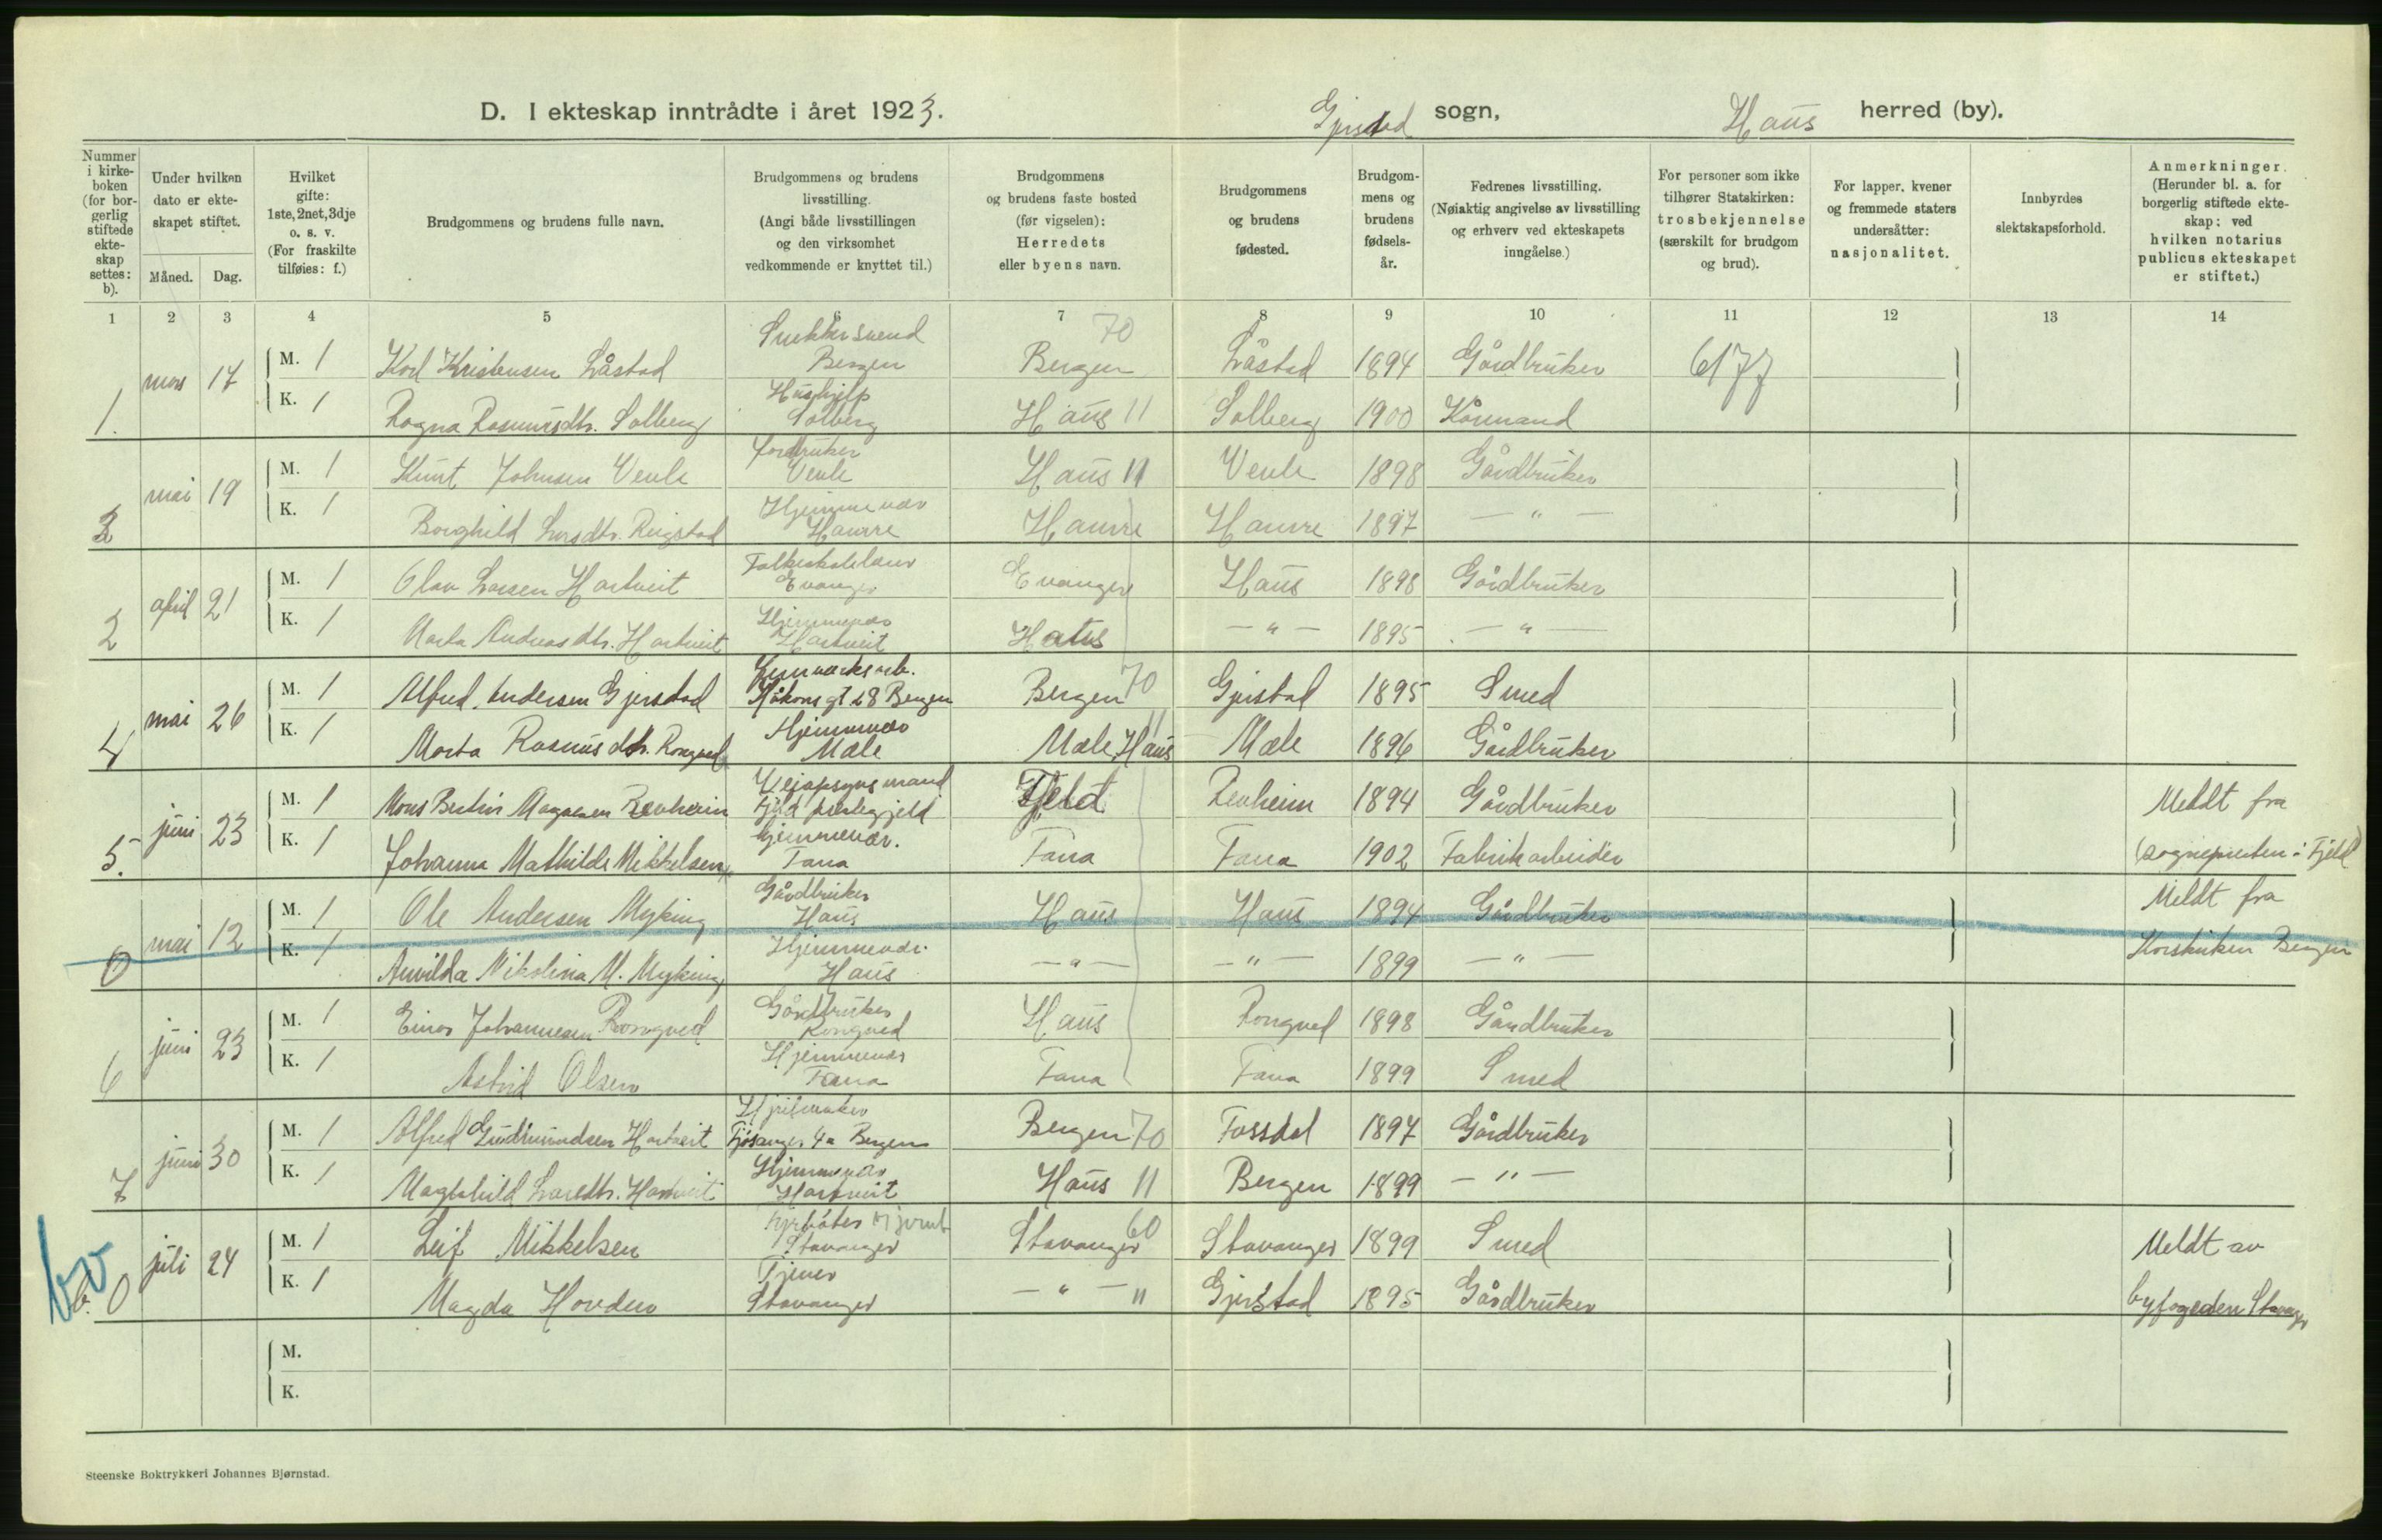 D. I ekteskap inntrådte i året 1923. Gjerstad sogn, Haus herred (by).
Nummer i kirkeboken (for borgerlig stiftede ekteskap settes: b).
Under hvilken dato er ekteskapet stiftet.
Måned. Dag.
Hvilket gifte: 1ste, 2net, 3dje o. s. v. (For fraskilte tilføies: f.)
Brudgommens og brudens fulle navn.
Brudgommens og brudens livsstilling. (Angi både livsstillingen og den virksomhet vedkommende er knyttet til.)
Brudgommens og brudens faste bosted (før vigselen): Herredets eller byens navn.
Brudgommens og brudens fødested.
Brudgommens og brudens fødselsår.
Fedrenes livsstilling. (Nøiaktig angivelse av livsstilling og erhverv ved ekteskapets inngåelse.)
For personer som ikke tilhører Statskirken: trosbekjennelse (særskilt for brudgom og brud).
For lapper, kvener og fremmede staters undersåtter: nasjonalitet.
Innbyrdes slektskapsforhold.
Anmerkninger. (Herunder bl. a. for borgerlig stiftede ekteskap: ved hvilken notarius publicus ekteskapet er stiftet.)
1 2 3 4 5 6 7 8 9 10 11 12 13 14
1. mars 17 M. 1 Karl Kristensen Låstad Snekkersvend Bergen Bergen 70 Låstad 1894 Gårdbruker 6177
K. 1 Ragna Rasmusdtr. Solberg Hushjelp Solberg Haus 11 Solberg 1900 Kårmand
3 mai 19 M. 1 Knut Johnsen Veule Jordbruker Veule Haus 11 Veule 1898 Gårdbruker
K. 1 Borghild Larsdtr. Ringstad Hjemmevær Hamre Hamre Hamre 1897 — " —
2 april 21 M. 1 Olav Larsen Hartveit Folkeskolelærer Evanger Evanger Haus 1898 Gårdbruker
K. 1 Marta Andreasdtr. Hartveit Hjemmevær Hartveit Haus — " — 1895 — " —
4 mai 26 M. 1 Alfred Andersen Gjerstad Håkons gt 28 Bergen Bergen 70 Gjerstad 1895 Smed
K. 1 Marta Rasmusdtr. Rongved Hjemmevær Mæle Mæle Haus 11 Mæle 1896 Gårdbruker
5. juni 23 M. 1 Mons Magnesen Revheim Veiopsynsmand Fjeld prestegjeld Fjeld Revheim 1894 Gårdbruker Meldt fra
K. 1 Johanna Mathilde Mikkelsen Hjemmevær. Fana Fana Fana 1902 Fabrikarbeider sognepresten i Fjeld
0 mai 12 M. 1 Ole Andersen Myking Gårdbruker Haus Haus Haus 1894 Gårdbruker Meldt fra
K. 1 Nikolina M. Myking Hjemmevær. Haus — " — — " — 1899 — " — Korskirken Bergen
6 juni 23 M. 1 Einar Johannesen Rongved Gårdbruker Rongved Haus Rongved 1898 Gårdbruker
K. 1 Astrid Olsen Hjemmevær Fana Fana Fana 1899 Smed
7 juni 30 M. 1 Alfred Gudmundsen Hartveit Fjøsanger 4a Bergen Bergen 70 Fossdal 1897 Gårdbruker
K. 1 Magnhild Larsdtr. Hartveit Hjemmevær Hartveit Haus 11 Bergen 1899 — " —
b. 0 juli 24 M. 1 Leif Mikkelsen Fyrbøter Stavanger Stavanger 60 Stavanger 1899 Smed Meldt av
K. 1 Magda Hovden Tjener Stavanger — " — " Gjerstad 1895 Gårdbruker byfogeden Stavanger
M.
K.
Steenske Boktrykkeri Johannes Bjørnstad.